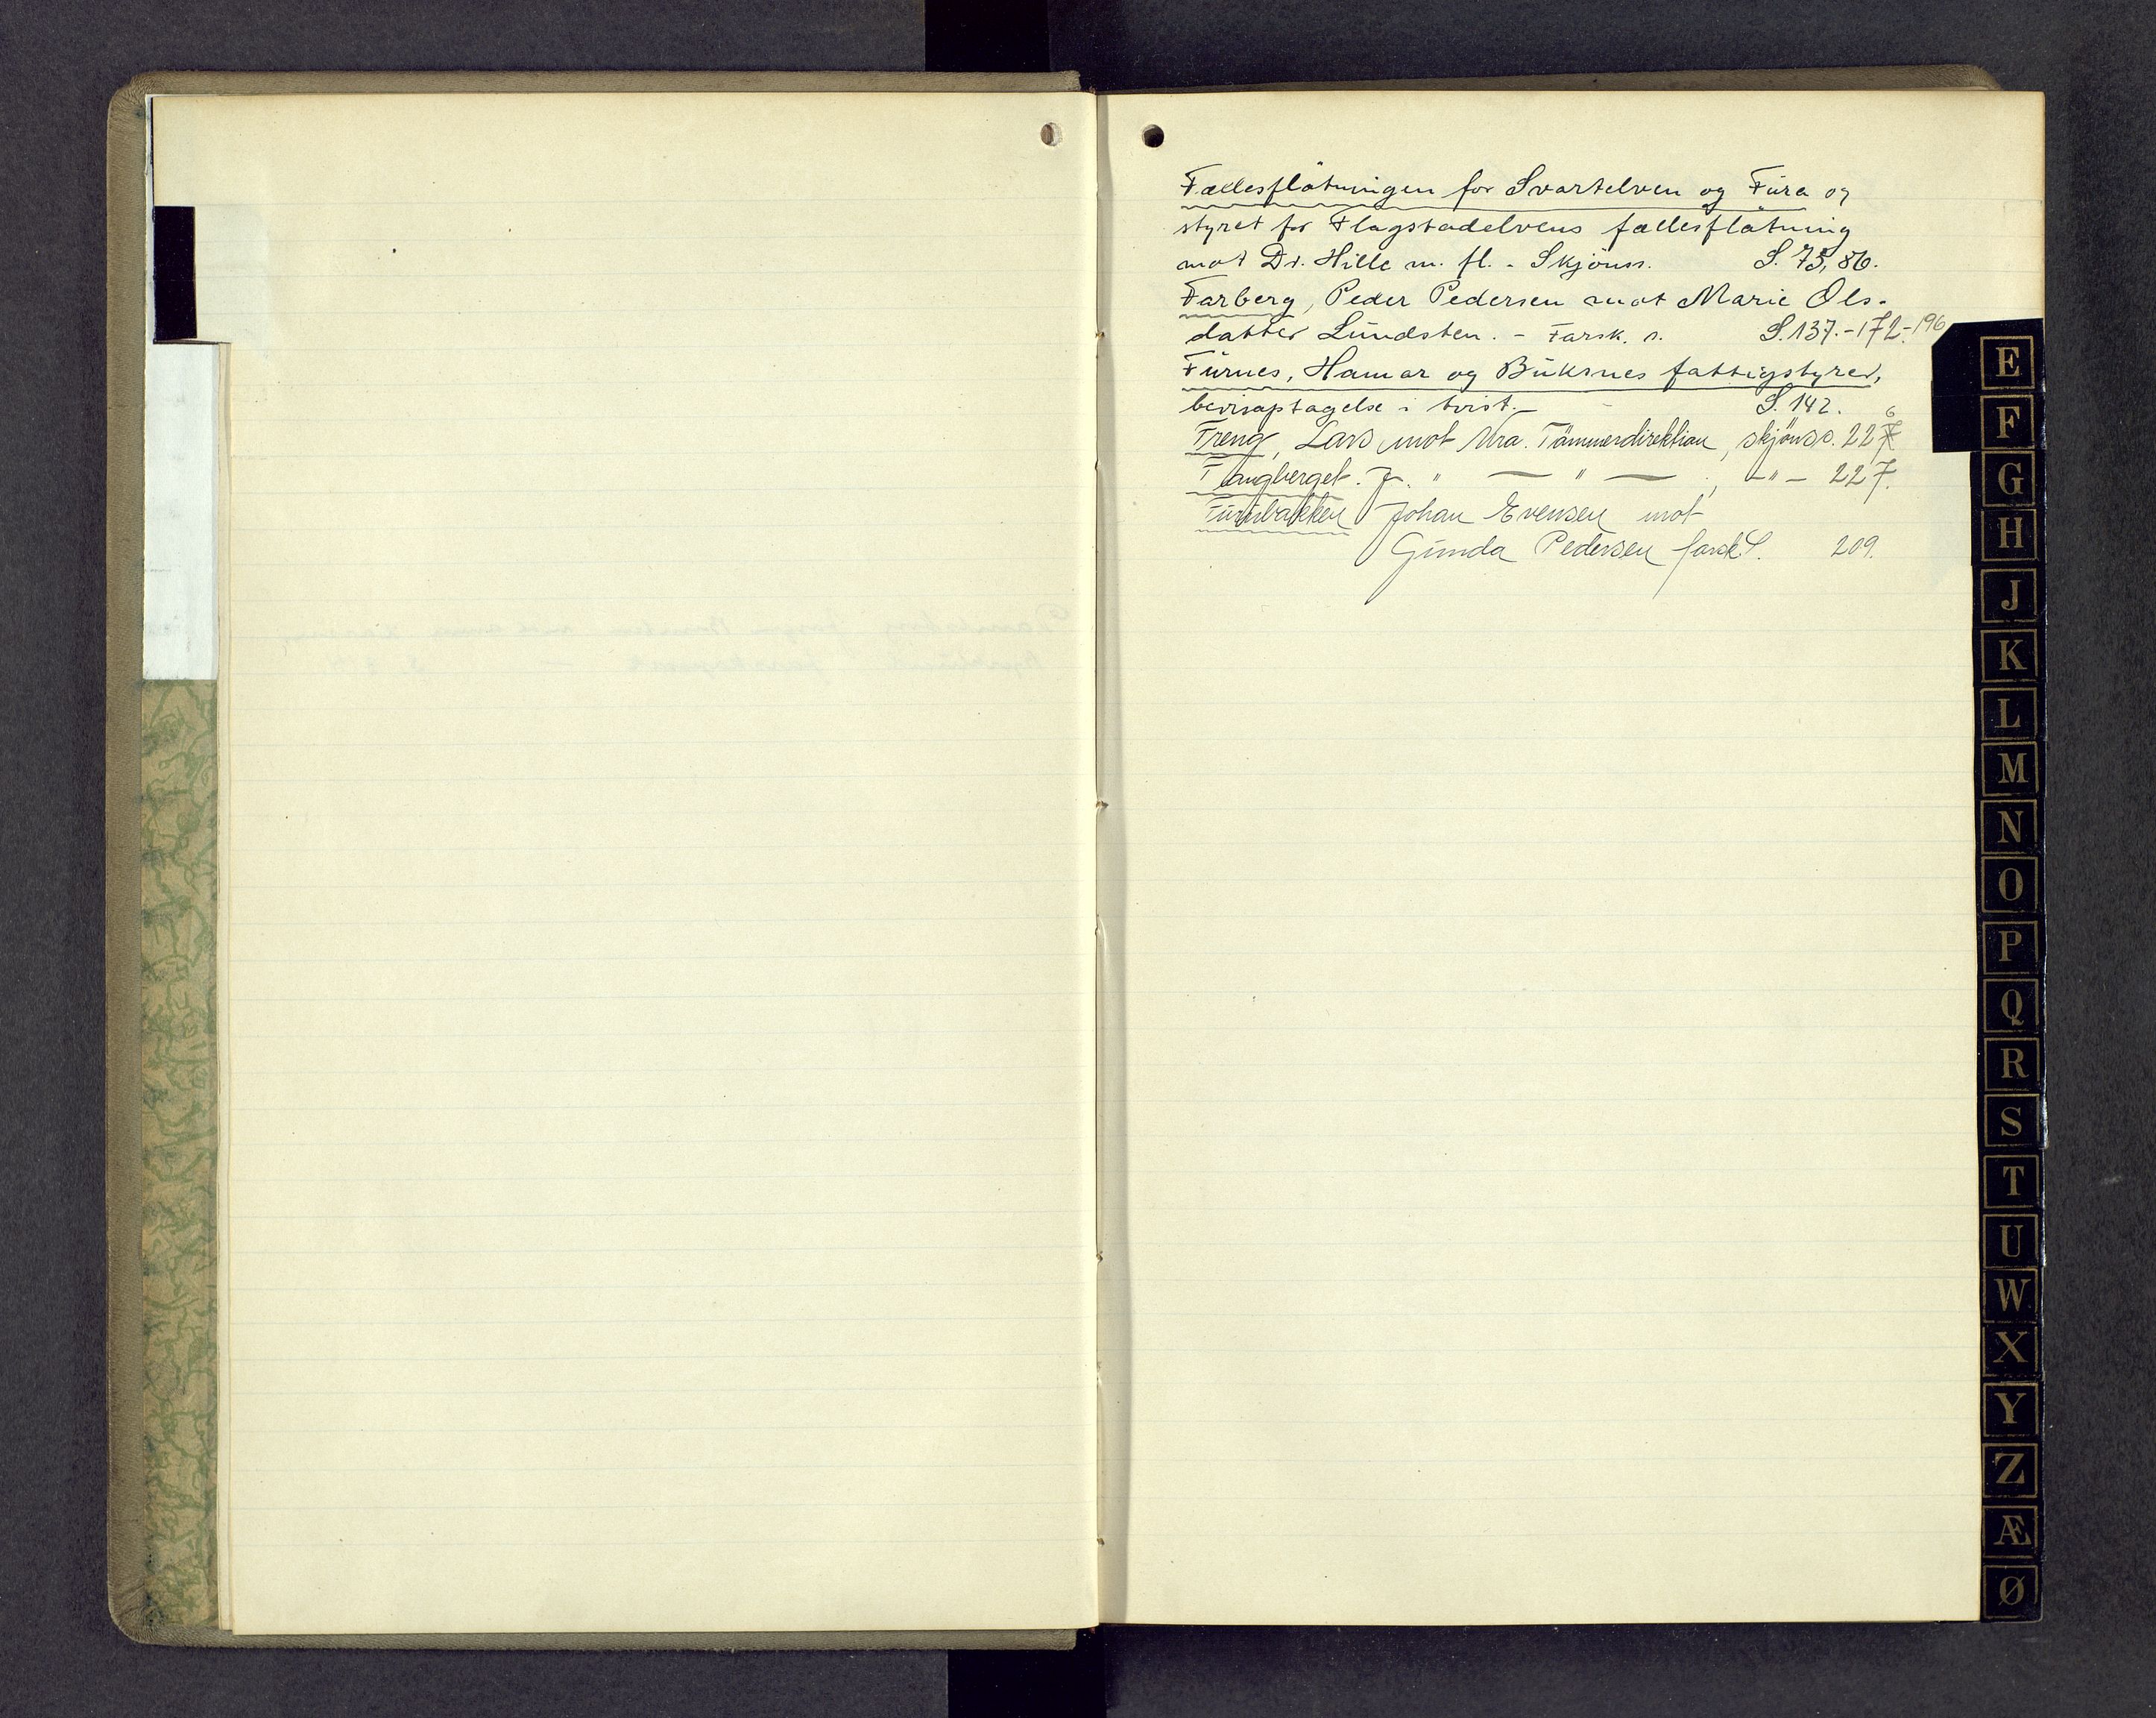 Fællesfløtningen for Svartelven og Fura og
styret for Flagstadelvens fællesfløtning
mot Dr. Hille m. fl. - Skjønss. S. 75, 86.
Farberg, Peder Pedersen mot Marie Ols-
datter Lundsten. - Farsk. s. S. 137.-172-196
Furnes, Hamar og Buksnes fattigstyrer,
bevisoptagelse i tvist.- S. 142.
Freng, Lars mot Tømmerdirektion, skjønss. 226
Fangberget. J. " — " — , -"- 227.
Furubakken Johan Evensen mot
Gunda Pedersen farsk S. 209.
E
F
G
H
J
K
L
M
N
O
P
Q
R
S
T
U
W
X
Y
Z
Æ
Ø